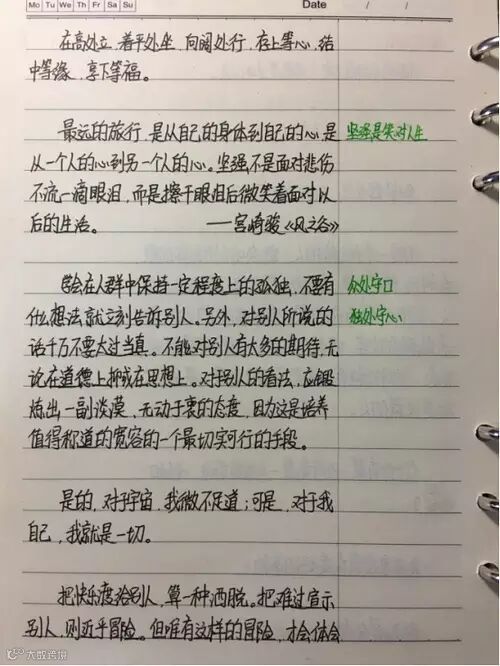 Mo Tu We Th Fr Sa Su
Date / /
在高处立，着平处坐，向阔处行，存上等心，结
中等缘，享下等福。
最远的旅行，是从自己的身体到自己的心，是
坚强是笑对人生
从一个人的心到另一个人的心。坚强不是面对悲伤
不流一滴眼泪，而是擦干眼泪后微笑着面对以
后的生活。 ——宫崎骏《风之谷》
学会在人群中保持一定程度上的孤独，不要有
众处守口
什么想法就立刻告诉别人。另外，对别人所说的
独处守心
话千万不要太过当真。不能对别人有太多的期待，无
论在道德上抑或在思想上。对别人的看法，应锻
炼出一副淡漠，无动于衷的态度，因为这是培养
值得称道的宽容的一个最切实可行的手段。
是的，对于宇宙，我微不足道；可是，对于我
自己，我就是一切。
把快乐渡给别人，算一种洒脱。把难过宣示
别人，则近乎冒险。但唯有这样的冒险，才会体会
大数跨境